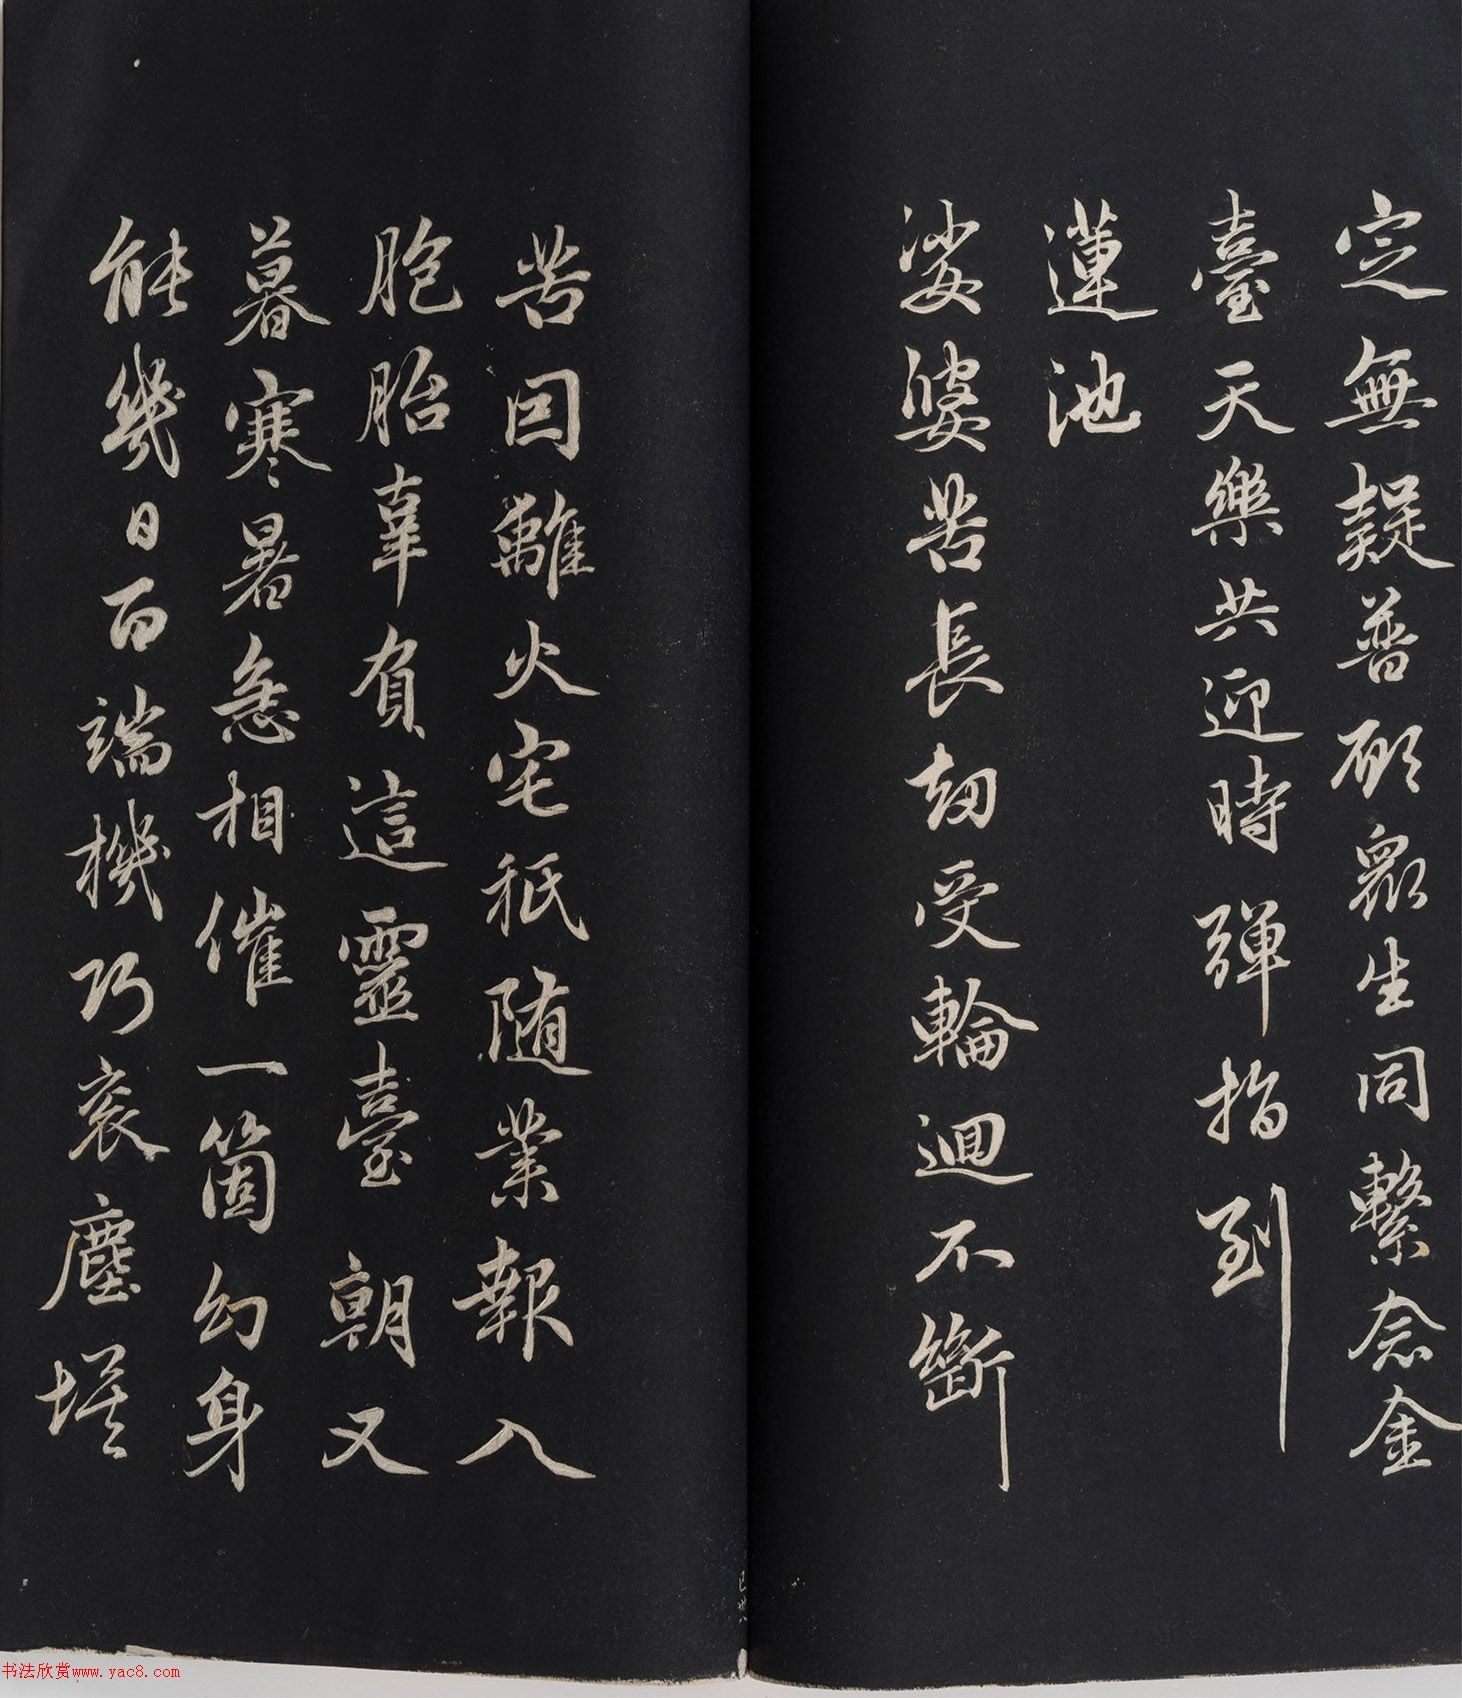 定無疑普願眾生同繫念金
臺天樂共迎時彈指到
蓮池
娑婆苦長劫受輪迴不斷
苦因難火宅秖隨業報入
胞胎辜負這靈臺朝又
暮寒暑急相催一箇幻身
能幾日百端機巧衮塵埃
书法欣赏www.yac8.com